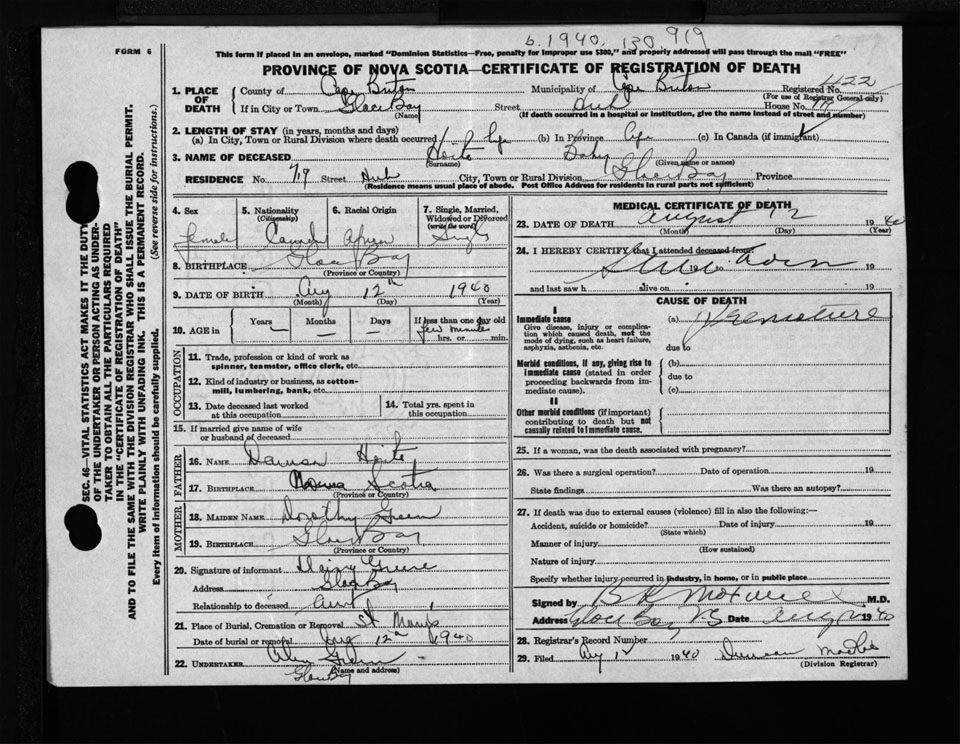 b. 1940. 130 919
FORM 6
This form if placed in an envelope, marked "Dominion Statistics—Free, penalty for improper use $300," and properly addressed will pass through the mail "FREE"
PROVINCE OF NOVA SCOTIA—CERTIFICATE OF REGISTRATION OF DEATH
1. PLACE OF DEATH
County of Cape Breton Municipality of Cape Breton Registered No. 422
(For use of Registrar General only)
If in City or Town Glace Bay Street House No.
(Name) (If death occurred in a hospital or institution, give the name instead of street and number)
2. LENGTH OF STAY (in years, months and days)
(a) In City, Town or Rural Division where death occurred Life (b) In Province Life (c) In Canada (if immigrant)
3. NAME OF DECEASED Baby
(Surname) (Given name or names)
RESIDENCE No. 79 Street City, Town or Rural Division Glace Bay Province
(Residence means usual place of abode. Post Office Address for residents in rural parts not sufficient)
4. Sex female
5. Nationality (Citizenship) Canada
6. Racial Origin African
7. Single, Married, Widowed or Divorced (write the word) Single
8. BIRTHPLACE Glace Bay
(Province or Country)
9. DATE OF BIRTH Aug 12th 1940
(Month) (Day) (Year)
10. AGE in Years Months Days If less than one day old
few minutes
hrs. or min.
OCCUPATION
11. Trade, profession or kind of work as spinner, teamster, office clerk, etc.
12. Kind of industry or business, as cotton-mill, lumbering, bank, etc.
13. Date deceased last worked at this occupation
14. Total yrs. spent in this occupation
15. If married give name of wife or husband of deceased
FATHER
16. NAME
17. BIRTHPLACE Nova Scotia
(Province or Country)
MOTHER
18. MAIDEN NAME Dorothy Green
19. BIRTHPLACE Glace Bay
(Province or Country)
20. Signature of informant
Address Glace Bay
Relationship to deceased Aunt
21. Place of Burial, Cremation or Removal St Mary's
Date of burial or removal Aug 12th 1940
22. UNDERTAKER
(Name and address)
Glace Bay
MEDICAL CERTIFICATE OF DEATH
23. DATE OF DEATH August 12 1940
(Month) (Day) (Year)
24. I HEREBY CERTIFY that I attended deceased from:
19 to 19
and last saw h alive on 19
CAUSE OF DEATH
I
Immediate cause (a) Premature
Give disease, injury or complication which caused death, not the mode of dying, such as heart failure, asphyxia, asthenia, etc.
due to
Morbid conditions, if any, giving rise to immediate cause (stated in order proceeding backwards from immediate cause).
(b)
due to
(c)
II
Other morbid conditions (if important) contributing to death but not causally related to immediate cause.
25. If a woman, was the death associated with pregnancy?
26. Was there a surgical operation? Date of operation 19
State findings Was there an autopsy?
27. If death was due to external causes (violence) fill in also the following:—
Accident, suicide or homicide? Date of injury 19
(State which)
Manner of injury
(How sustained)
Nature of injury
Specify whether injury occurred in industry, in home, or in public place
Signed by M.D.
Address Glace Bay NS Date Aug 1940
28. Registrar's Record Number
29. Filed Aug 12 1940 Duncan
(Division Registrar)
SEC. 46—VITAL STATISTICS ACT MAKES IT THE DUTY
OF THE UNDERTAKER OR PERSON ACTING AS UNDERTAKER TO OBTAIN ALL THE PARTICULARS REQUIRED
IN THE "CERTIFICATE OF REGISTRATION OF DEATH"
AND TO FILE THE SAME WITH THE DIVISION REGISTRAR WHO SHALL ISSUE THE BURIAL PERMIT.
WRITE PLAINLY WITH UNFADING INK. THIS IS A PERMANENT RECORD.
Every item of information should be carefully supplied. (See reverse side for instructions.)